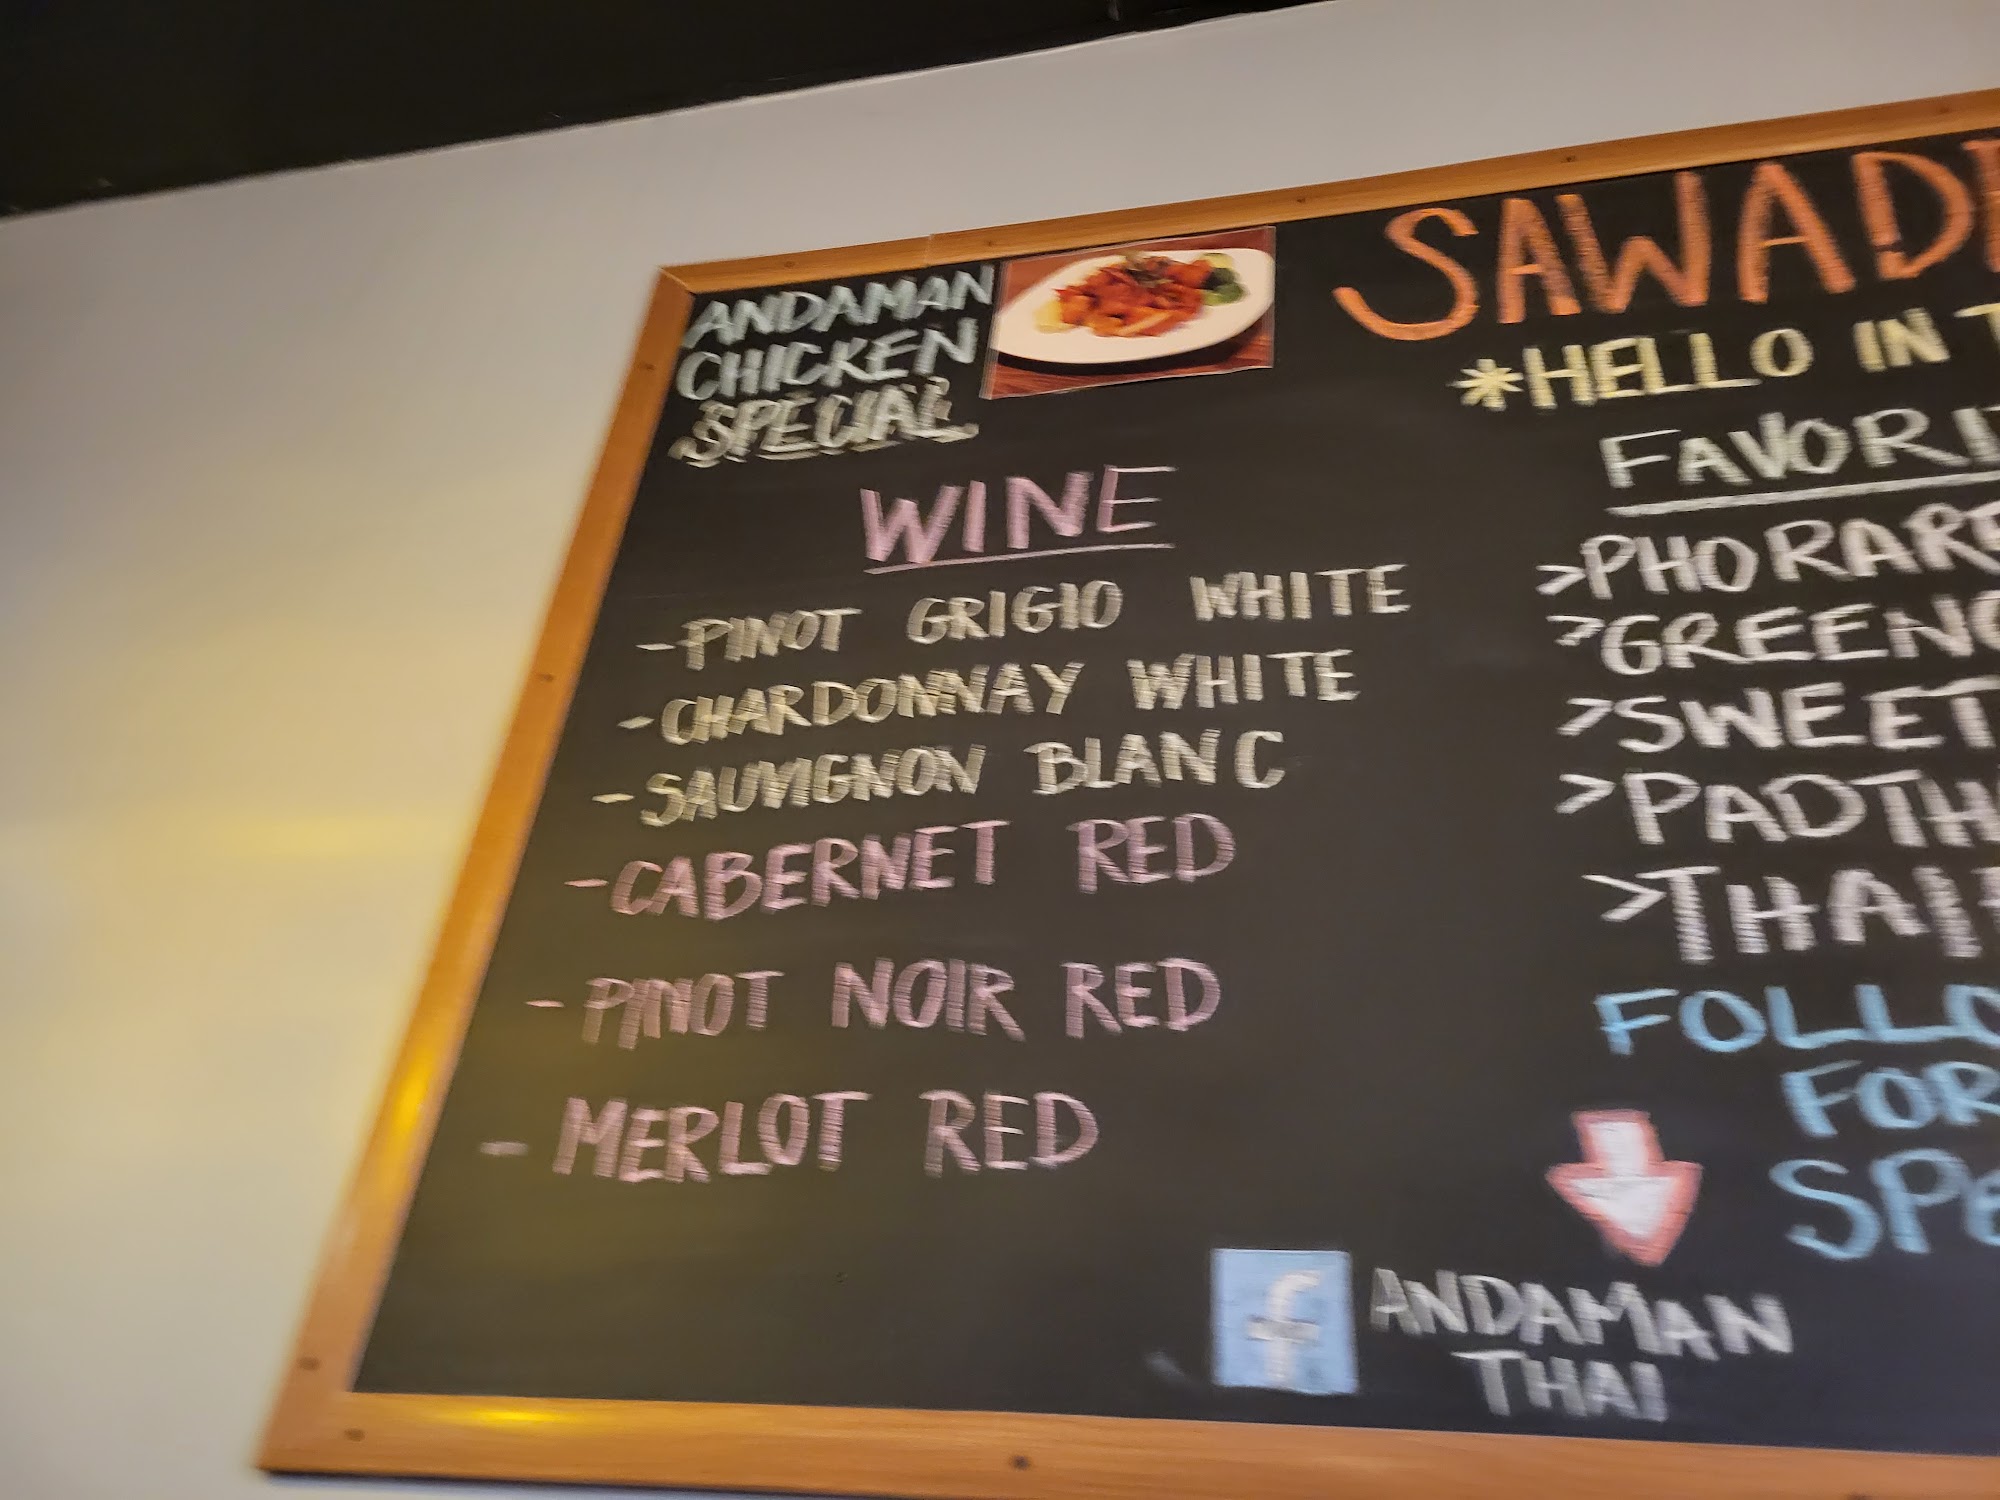 ANDAMAN
CHICKEN
SPECIAL
WINE
- PINOT GRIGIO WHITE
- CHARDONNAY WHITE
- SAUVIGNON BLANC
- CABERNET RED
- PINOT NOIR RED
- MERLOT RED
SAWAD
*HELLO IN T
FAVORI
>PHO RARE
>GREEN
>SWEET
>PADTH
>THAI
FOLLO
FOR
SPE
f ANDAMAN
THAI